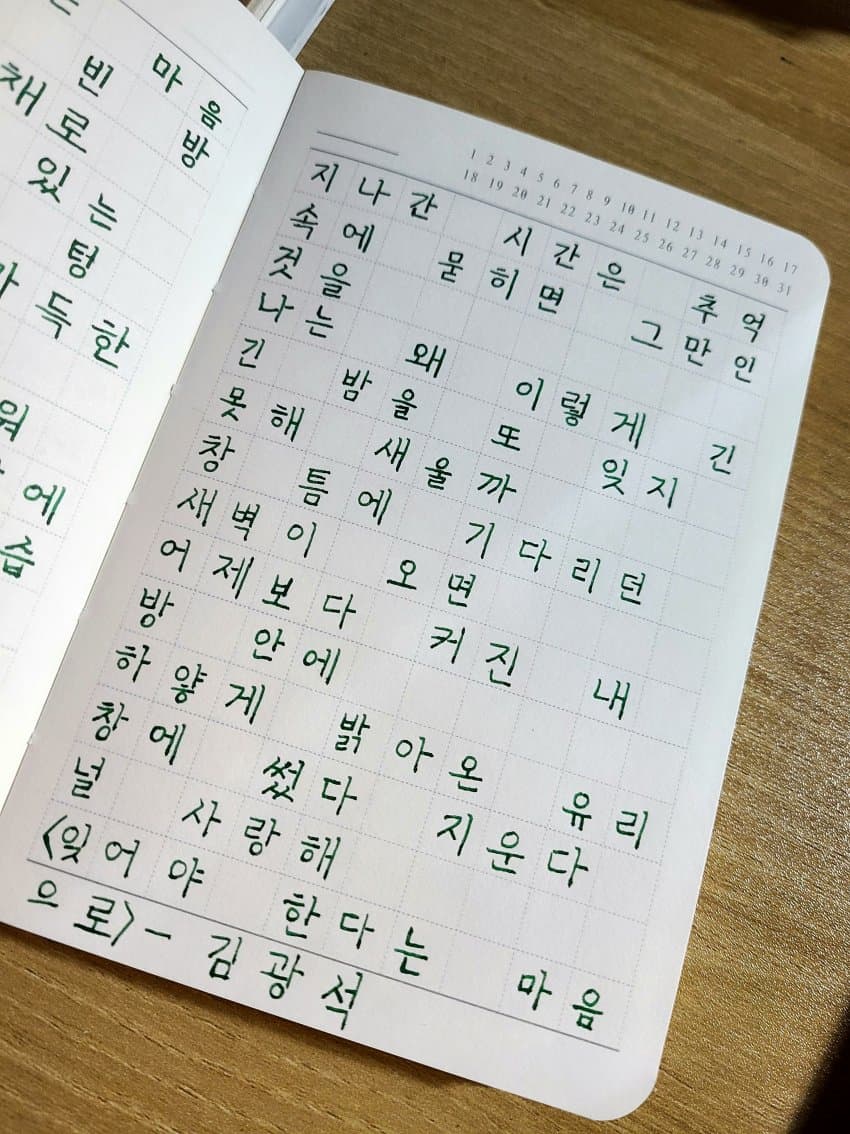 마음
빈 방
채로
있는
텅
득한
워
에
습
1 2 3 4 5 6 7 8 9 10 11 12 13 14 15 16 17
18 19 20 21 22 23 24 25 26 27 28 29 30 31
지나간 시간은 추억
속에 묻히면 그만인
것을
나는 왜 이렇게 긴
긴 밤을 또 잊지
못해 새울까
창 틈에 기다리던
새벽이 오면
어제보다 커진 내
방 안에
하얗게 밝아온 유리
창에 썼다 지운다
널 사랑해
<잊어야 한다는 마음
으로> - 김광석